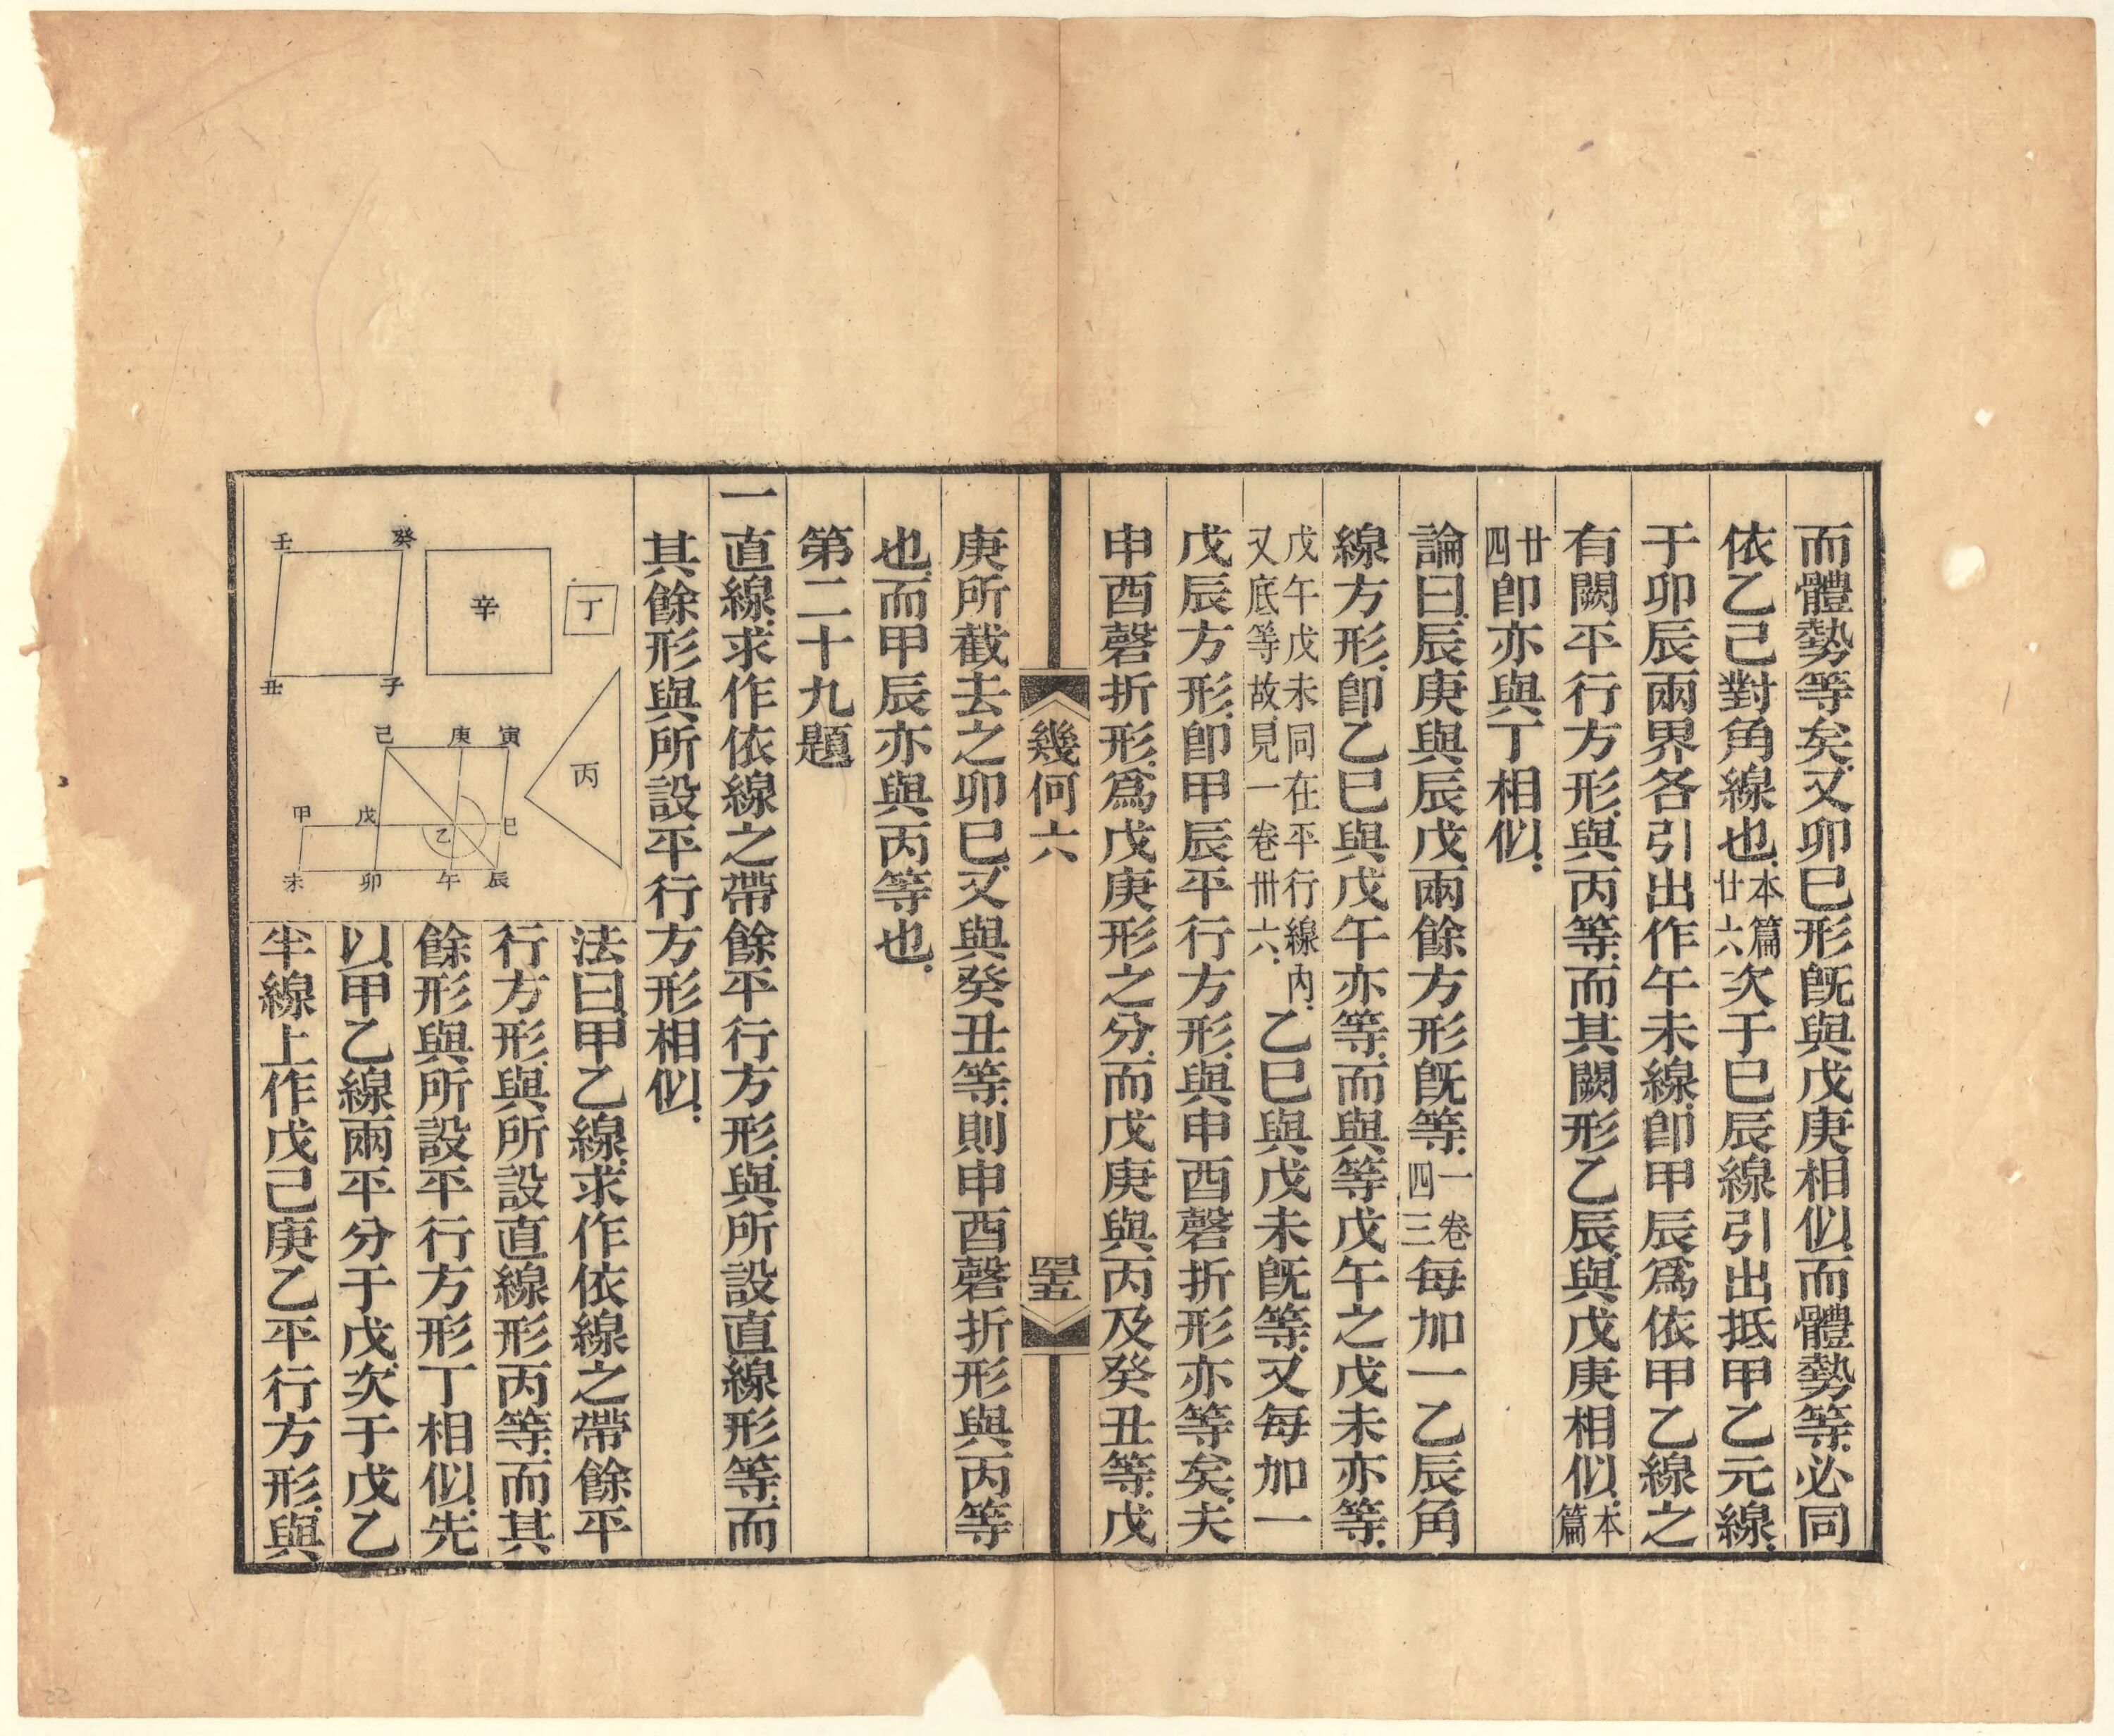 而體勢等矣又卯巳形旣與戊庚相似而體勢等必同
依乙己對角線也本篇廿六次于巳辰線引出抵甲乙元線
于卯辰兩界各引出作午未線卽甲辰爲依甲乙線之
有闕平行方形與丙等而其闕形乙辰與戊庚相似本篇
廿四卽亦與丁相似
論曰辰庚與辰戊兩餘方形旣等一卷四三每加一乙辰角
線方形卽乙巳與戊午亦等而與等戊午之戊未亦等
戊午戊未同在平行線內又底等故見一卷卅六乙巳與戊未旣等又每加一
戊辰方形卽甲辰平行方形與申酉磬折形亦等矣夫
申酉磬折形爲戊庚形之分而戊庚與丙及癸丑等戊
幾何六
罒五
庚所截去之卯巳又與癸丑等則申酉磬折形與丙等
也而甲辰亦與丙等也
第二十九題
一直線求作依線之帶餘平行方形與所設直線形等而
其餘形與所設平行方形相似
丁
辛
癸
壬
子
丑
丙
寅
庚
己
甲
戊
乙
巳
未
卯
午
辰
法曰甲乙線求作依線之帶餘平
行方形與所設直線形丙等而其
餘形與所設平行方形丁相似先
以甲乙線兩平分于戊次于戊乙
半線上作戊己庚乙平行方形與